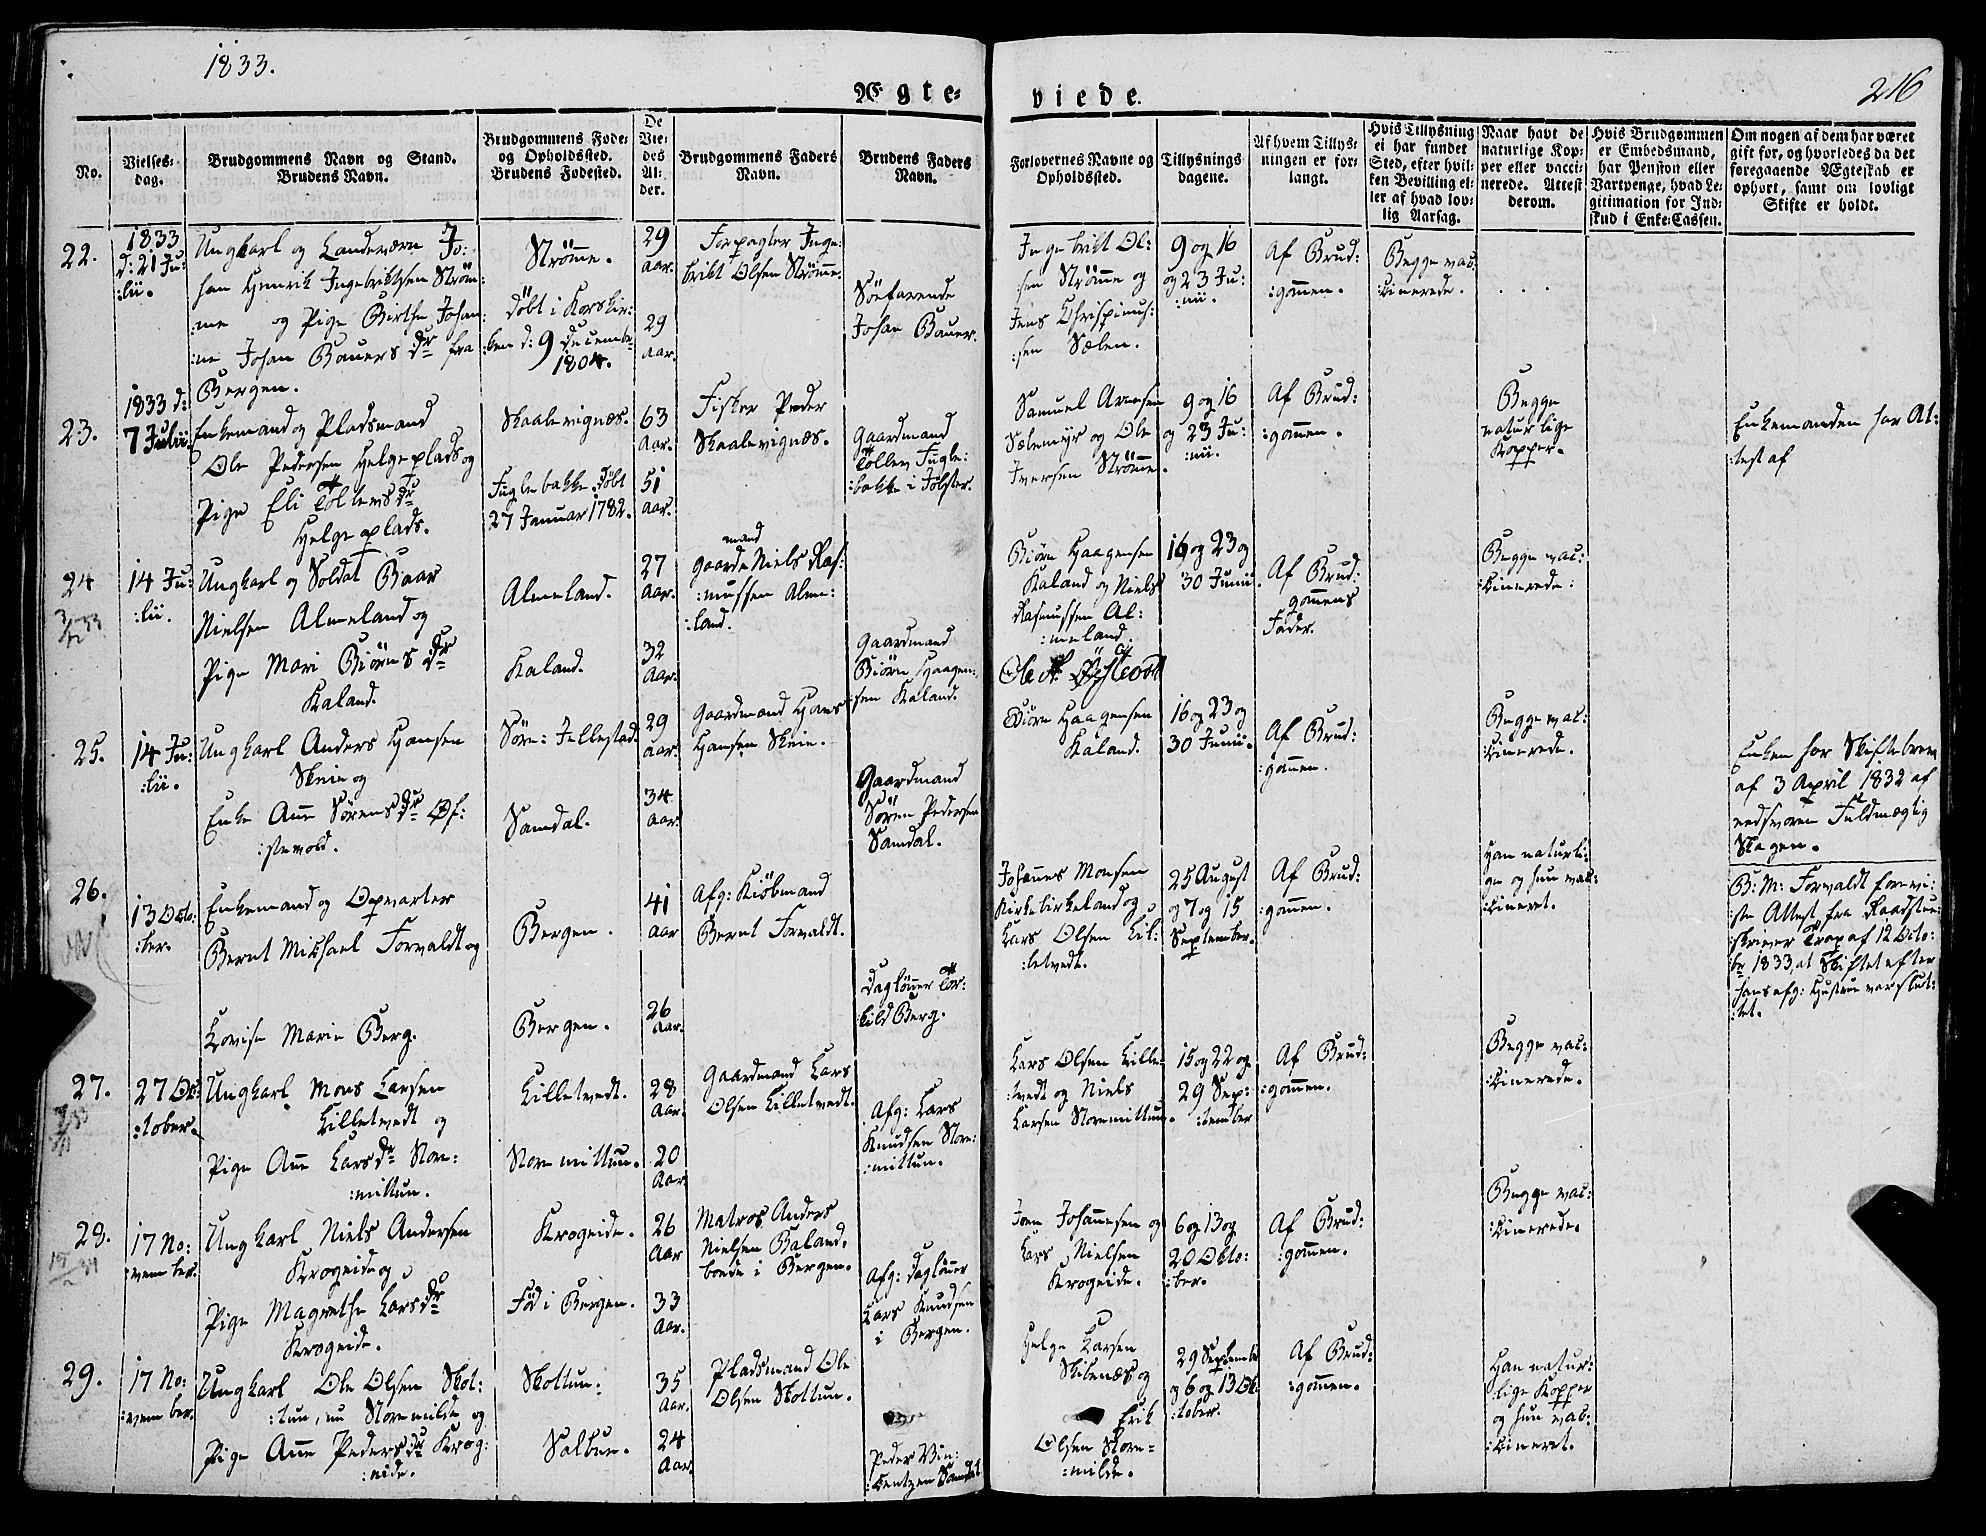 1833.
216
Ægte-
viede.
No.
Vielses-
dag.
Brudgommens Navn og Stand.
Brudens Navn.
Brudgommens Føde-
og Opholdssted.
Brudens Fødested.
De
Vie-
des
Al-
der.
Brudgommens Faders
Navn.
Brudens Faders
Navn.
Forlovernes Navne og
Opholdssted.
Tillysnings
dagene.
Af hvem Tillys-
ningen er for-
langt.
Hvis Tillysning
ei har fundet
Sted, efter hvil-
ken Bevilling el-
ler af hvad lov-
lig Aarsag.
Naar havt de
naturlige Kop-
per eller vacci-
nerede. Attest
derom.
Hvis Brudgommen
er Embedsmand,
har Pension eller
Vartpenge, hvad Le-
gitimation for Ind-
skud i Enke-Cassen.
Om nogen af dem har været
gift før, og hvorledes da det
foregaaende Ægteskab er
ophørt, samt om lovligt
Skifte er holdt.
22.
1833
d: 21 Ju:
:lii.
Ungkarl og Landeværn Jo:
han Henrik Ingebriktsen Ström:
:me og Pige Birthe Johan:
:ne Johan Bauers Dr fra
Bergen.
Strömme.
döbt i Korskir:
:ken d: 9 December
1804.
29
aar.
29
aar.
Forpagter Inge:
brikt Olsen Strömme.
Söefarende
Johan Bauer.
Ingebrikt Ol:
:sen Strömme og
Jens Chrispinus:
:sen Sælen.
9 og 16
og 23 Ju:
:nii.
Af Brud:
:gommen.
Begge vac:
:cinerede.
. . .
23.
1833 d:
7 Julii
Enkemand og Pladsmand
Ole Pedersen Helgeplads og
Pige Eli Tollevs Dr
Helgeplads.
Skaalevignæs.
Fuglebakke. döbt
27 Januar 1782.
63
aar.
51
aar.
Fisker Peder
Skaalevignæs.
Gaardmand
Tollev Fugle:
:bakke i Jölster.
Samuel Arnesen
Sælemyr og Ole
Iversen Strömme.
9 og 16
og 23 Ju:
:nii.
Af Brud:
:gommen.
Begge
naturlige
Kopper.
Enkemanden har At:
:test af
24
14 Ju:
:lii.
Ungkarl og Soldat Baar
Nielsen Almeland og
Pige Mari Biörns Dr
Kaland.
Almeland.
Kaland.
27
Aar.
32
Aar.
mand
Gaard Niels Ras:
:mussen Alme:
:land.
Gaardmand
Biörn Haagen:
:sen Kaland.
Biörn Haagensen
Kaland og Niels
Rasmussen Al:
:meland.
16 og 23 og
30 Junii.
Af Brud:
gommens
Fader.
Begge vac:
:cinerede.
25.
14 Ju:
:lii.
Ungkarl Anders Hansen
Skeie og
Enke Ane Sörens Dr Øf:
:stevold.
Söre: Jellestad.
Samdal.
29
aar.
34
aar.
Gaardmand Hans
Hansen Skeie.
Gaardmand
Sören Pedersen
Samdal.
Biörn Haagensen
Kaland.
16 og 23 og
30 Junii.
Af Brud:
:gommen.
Begge vac:
:cinerede.
Enken har Skiftebrev
af 3 April 1832 af
eedsvoren Fuldmægtig
Skagen.
26.
13 Octo:
:ber.
Enkemand og Opvarter
Bernt Michael Forvaldt og
Lovise Marie Berg.
Bergen.
Bergen.
41
aar
26
Aar.
Afg: Kiöbmand
Bernt Forvaldt.
Daglönner Tor:
:kild Berg.
Johannes Monsen
Kirkebirkeland og
Lars Olsen Lil:
:letvedt.
25 August
og 7 og 15
September.
Af Brud:
:gommen.
Han naturli:
:ge og hun vac:
:cineret.
B: M: Forvaldt forevi:
:ste Attest fra Raadstue:
:skriver Trap af 12 Octo:
br 1833, at Skiftet efter
hans afg: Hustrue var slut:
:tet.
27.
27 Oc:
:tober.
Ungkarl Mons Larsen
Lilletvedt og
Pige Ane Lars Dr Store:
:mittun.
Lilletvedt.
Storemittun.
28
Aar.
20
Aar
Gaardmand Lars
Olsen Lilletvedt.
Afg: Lars
Knudsen Store:
:mittun.
Lars Olsen Lille:
:tvedt og Niels
Larsen Storemittun.
15 og 22 og
29 Sep:
:tember
Af Brud:
:gommen.
Begge vac:
:cinerede.
28.
17 No:
:vember.
Ungkarl Niels Andersen
Krogeide og
Pige Magrethe Lars Dr
Krogeide.
Krogeide.
Föd i Bergen.
26
Aar
33
Aar.
Matros Anders
Nielsen Baland.
boede i Bergen.
Afg: Daglönner
Lars Knudsen
i Bergen.
Joen Johannesen og
Lars Nielsen
Krogeide.
6 og 13 og
20 Octo:
:ber.
Af Brud:
:gommen.
Begge vac:
:cinerede.
29.
17 No:
:vember.
Ungkarl Ole Olsen Skot:
:tun, nu Storemilde og
Pige Ane Peders Dr Krog:
:eide.
Skottun.
Salbue.
35
Aar.
24
Aar.
Pladsmand Ole
Olsen Skottun.
Peder Vin:
:centzen Samdal
Helge Larsen
Skibenæs og
Erik
Olsen Store=
:milde.
29 September
og 6 og 13 Oc
:tober.
Af Brud:
:gommen.
Han natur:
:lige Kopper
og hun vac:
:cineret.